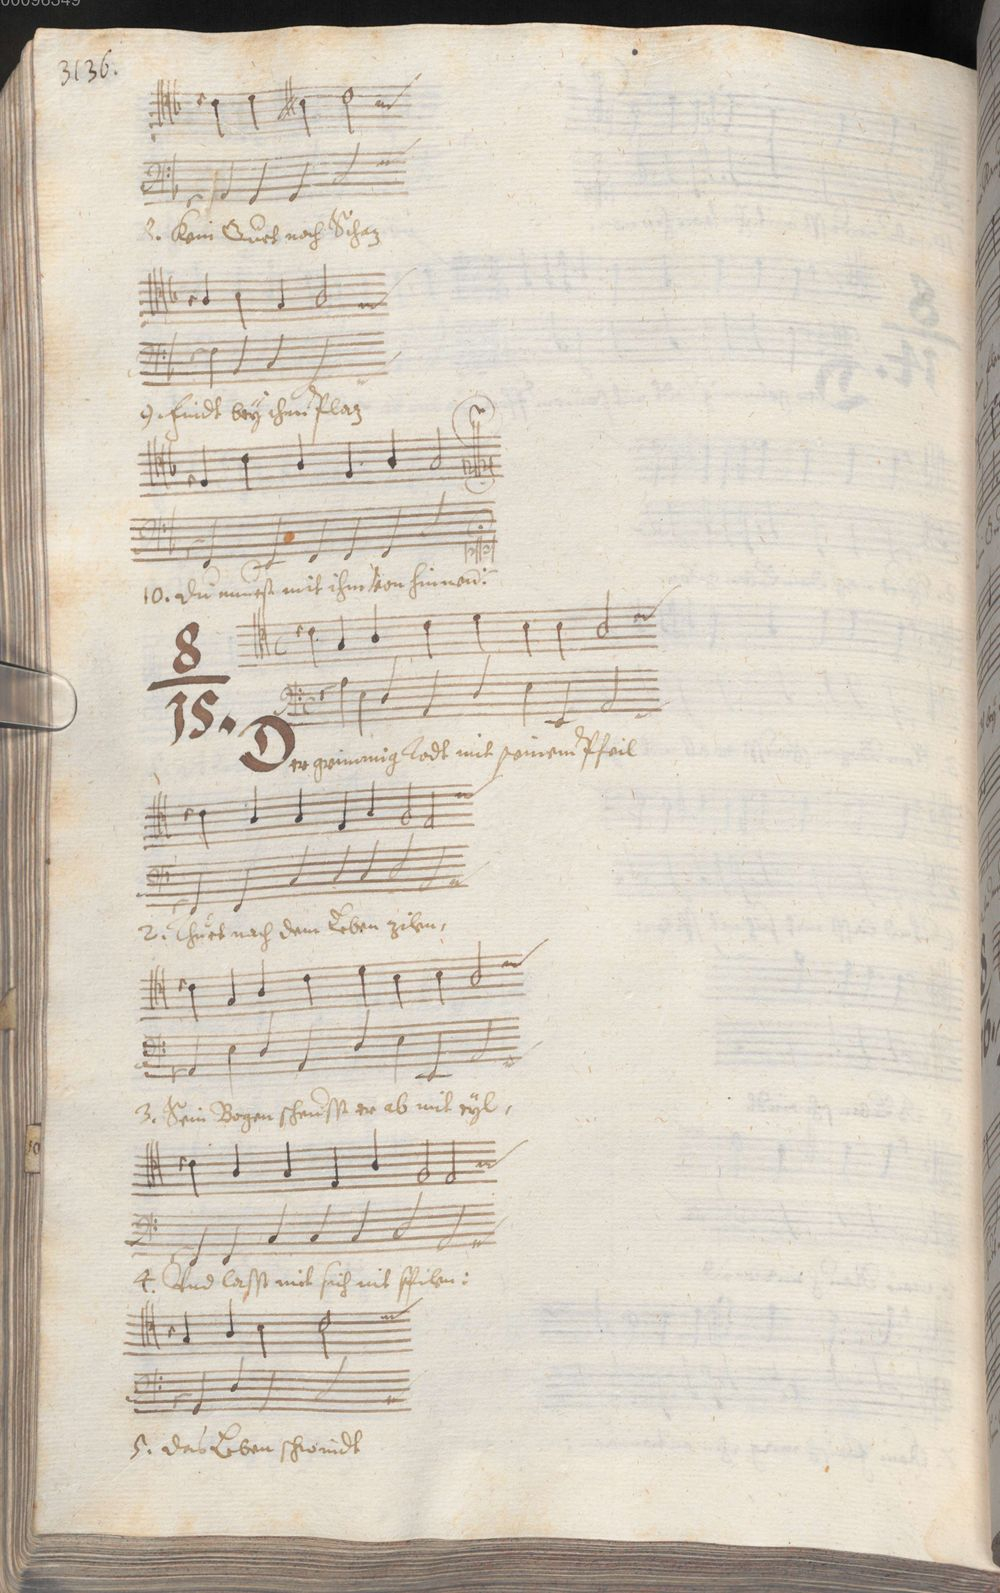 00098349
3136.
8. Kein Guet noch Schaz
9. Findt bey ihm Plaz
10. Du muest mit ihm von hinnen:
8
15.
Der grimmig Todt mit seinem Pfeil
2. Thuet nach dem Leben zilen,
3. Sein Bogen scheusst er ab mit eyl,
4. Und lasst mit sich nit spilen:
5. das Leben schwindt